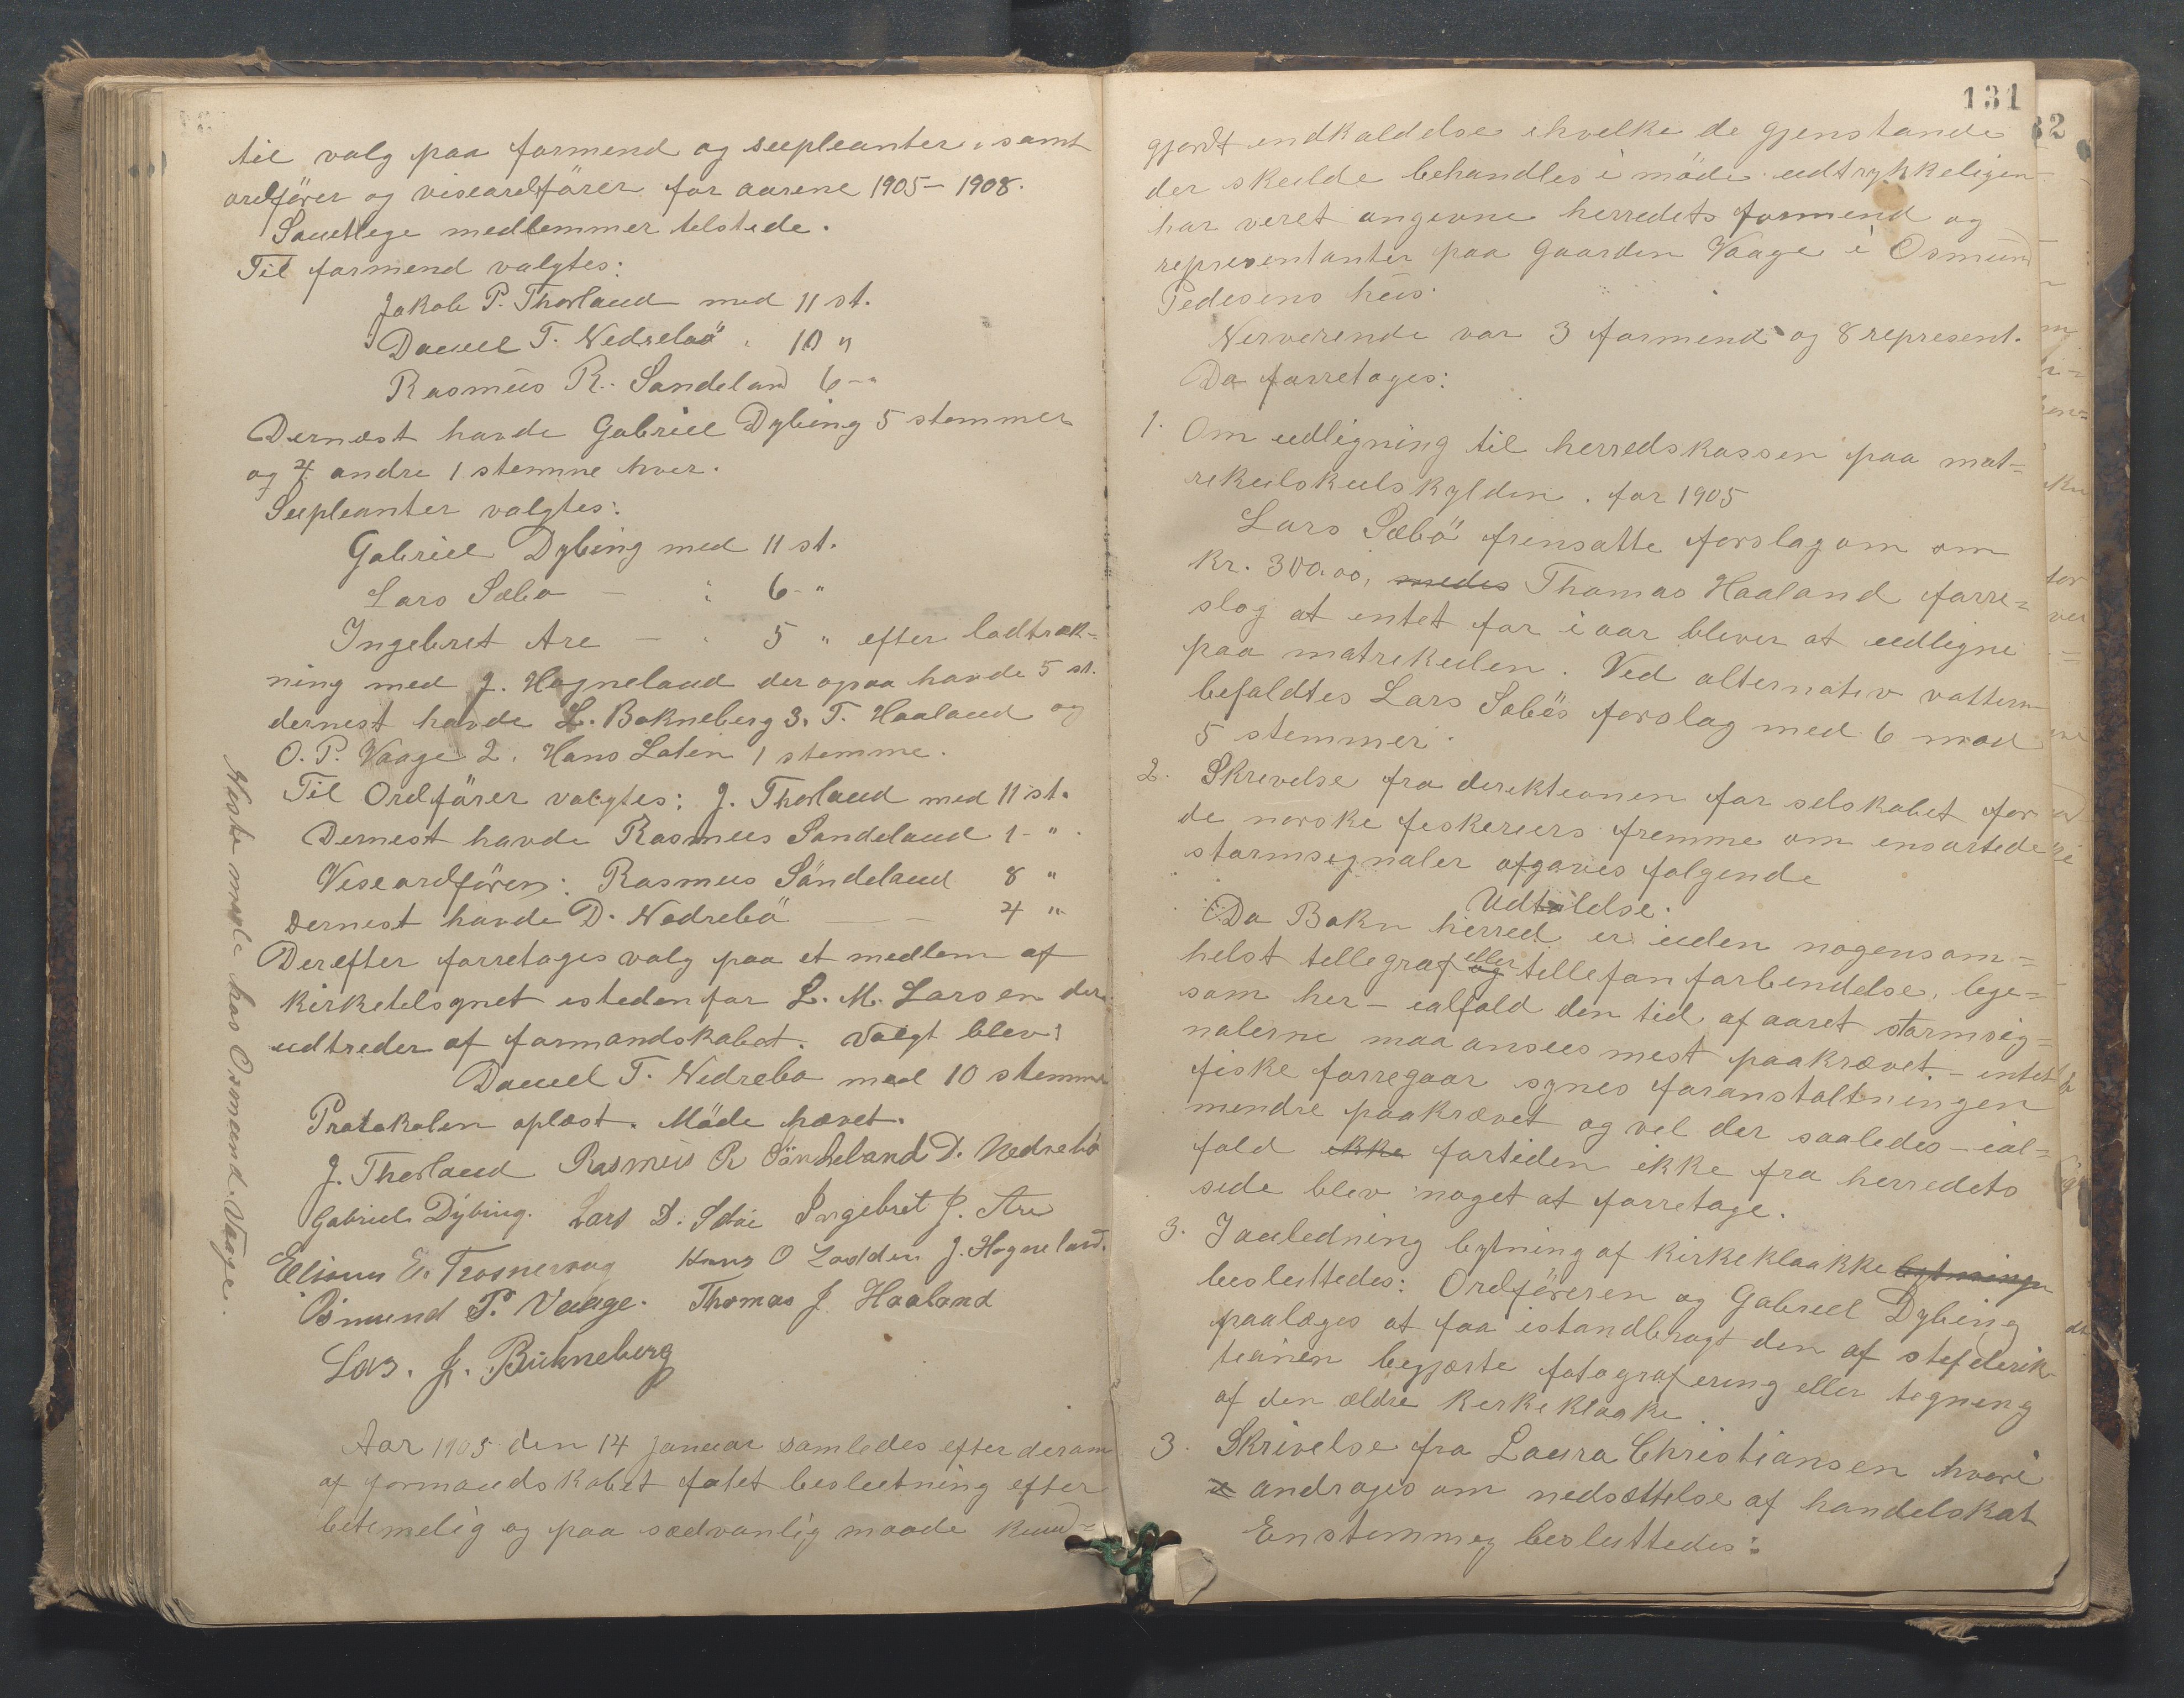 til valg paa formend og supleanter, samt
ordförer og viseordförer for aarene 1905–1908.
Samtlege medlemmer telstede.
Til formend valgtes:
Jakob P. Thorland med 11 st.
Daniel T. Nedrebö " 10 "
Rasmus R. Sandeland 6 – "
Dernæst havde Gabriel Dybing 5 stemmer
og 4 andre 1 stemme hver.
Supleanter valgtes:
Gabriel Dybing med 11 st.
Lars Sæbø – " 6 – "
Ingebret Are – " 5 " efter lodtræk=
ning med J. Hogneland der ogsaa havde 5 st.
dernest havde L. Bokneberg 3. T. Haaland og
O. P. Vaage 2. Hans Loten 1 stemme.
Til Ordförer valgtes: J. Thorland med 11 st.
Dernest havde Rasmus Sandeland 1 – "
Viseordförer: Rasmus Sandeland 8 "
Dernest havde D. Nedrebö – – 4 "
Derefter forretoges valg paa et medlem af
kirketelsynet isteden for L. M. Larsen der
udtreder af formandskabet. Valgt blev:
Daniel T. Nedrebø med 10 stemmer
Protokolen oplæst. Möde hævet.
J. Thorland Rasmus R Sandeland D. Nedrebö
Gabriel Dybing. Lars D. Sebö Ingebret J. Are
Elias E. Trosnavag Hans O Lodden J. Hogneland.
Osmund P. Vaage. Thomas J. Haaland
Lars. J. Bukneberg
Neste møde hos Osmund Vaage.
Aar 1905 den 14 januar samledes efter derom
af formandskabet fatet beslutning efter
betimelig og paa sædvanlig maade kund=
131
gjordt endkaldelse i hvelke de gjenstande
der skulde behandles i möde udtrykkeligen
har veret angevne herredets formend og
representanter paa Gaarden Vaage i Osmund
Pedesens hus.
Nerverende var 3 formend og 8 represent.
Da forretoges:
1. Om udligning til herredskassen paa mat=
rikulskulskylden. for 1905
Lars Sæbö fremsatte forslag om om
kr. 300.00, medes Thomas Haaland forre=
slog at entet for i aar blever at udligne
paa matrekulen. Ved alternativ vottering
befaldtes Lars Sæbös forslag med 6 mod
5 stemmer.
2. Skrevelse fra direktionen for selskabet for
de norske feskeriers fremme om ensartede
stormsegnaler afgaves følgende
Udtalelse.
Da Bokn herred er uden nogensom=
helst tellegraf og eller tellefon forbendelse, lige=
som her – ialfald den tid af aaret stormsig=
nalerne maa ansees mest paakrævet – entet
fiske forregaar synes foranstaltningen
mendre paakrævet og vel der saaledes – ial=
fald ikke fortiden ikke fra herredets
side blev noget at forretage.
3. I anledning bytning af kirkeklokke bytningen
besluttedes: Ordföreren og Gabriel Dybing
paalæges at faa istandbragt den af stiftderik
tionen begjærte fotografering eller tegning
af den ældre kerkeklokke.
3. Skrivelse fra Laura Christiansen hvori
e androges om nedsættelse af handelskat
Enstemmeg besluttedes: